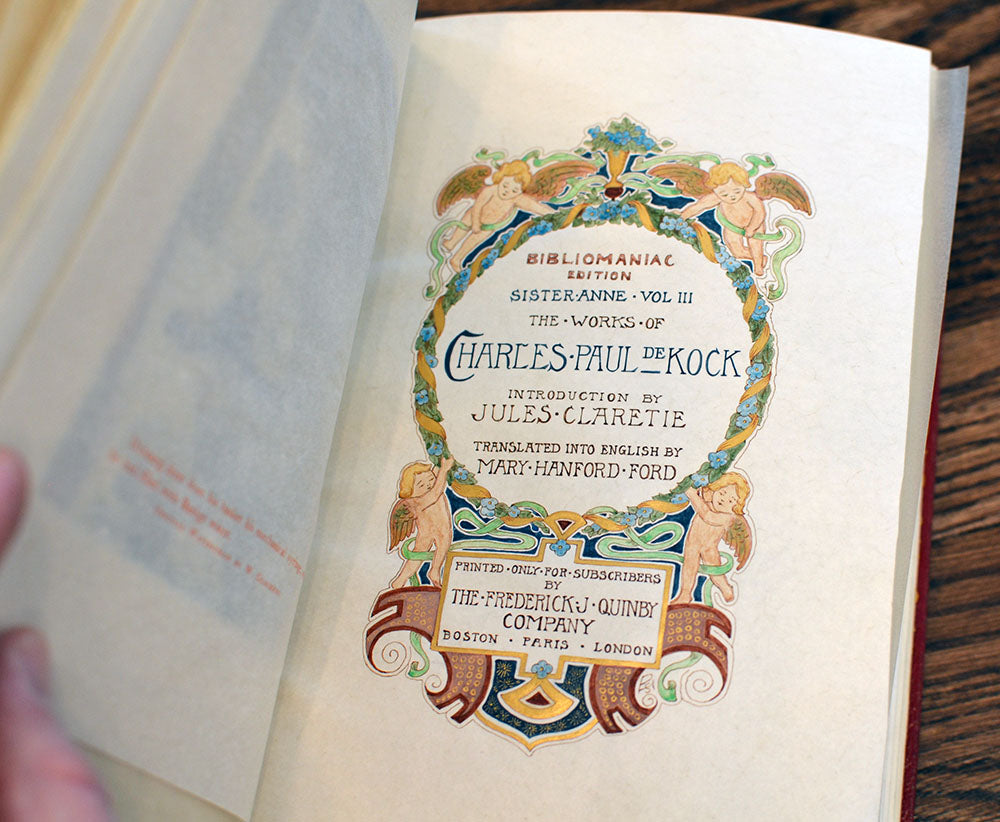 BIBLIOMANIAC
EDITION
SISTER·ANNE · VOL III
THE · WORKS · OF
CHARLES · PAUL DE KOCK
INTRODUCTION BY
JULES · CLARETIE
TRANSLATED INTO ENGLISH BY
MARY · HANFORD · FORD
PRINTED · ONLY · FOR · SUBSCRIBERS
BY
THE · FREDERICK · J · QUINBY
COMPANY
BOSTON · PARIS · LONDON